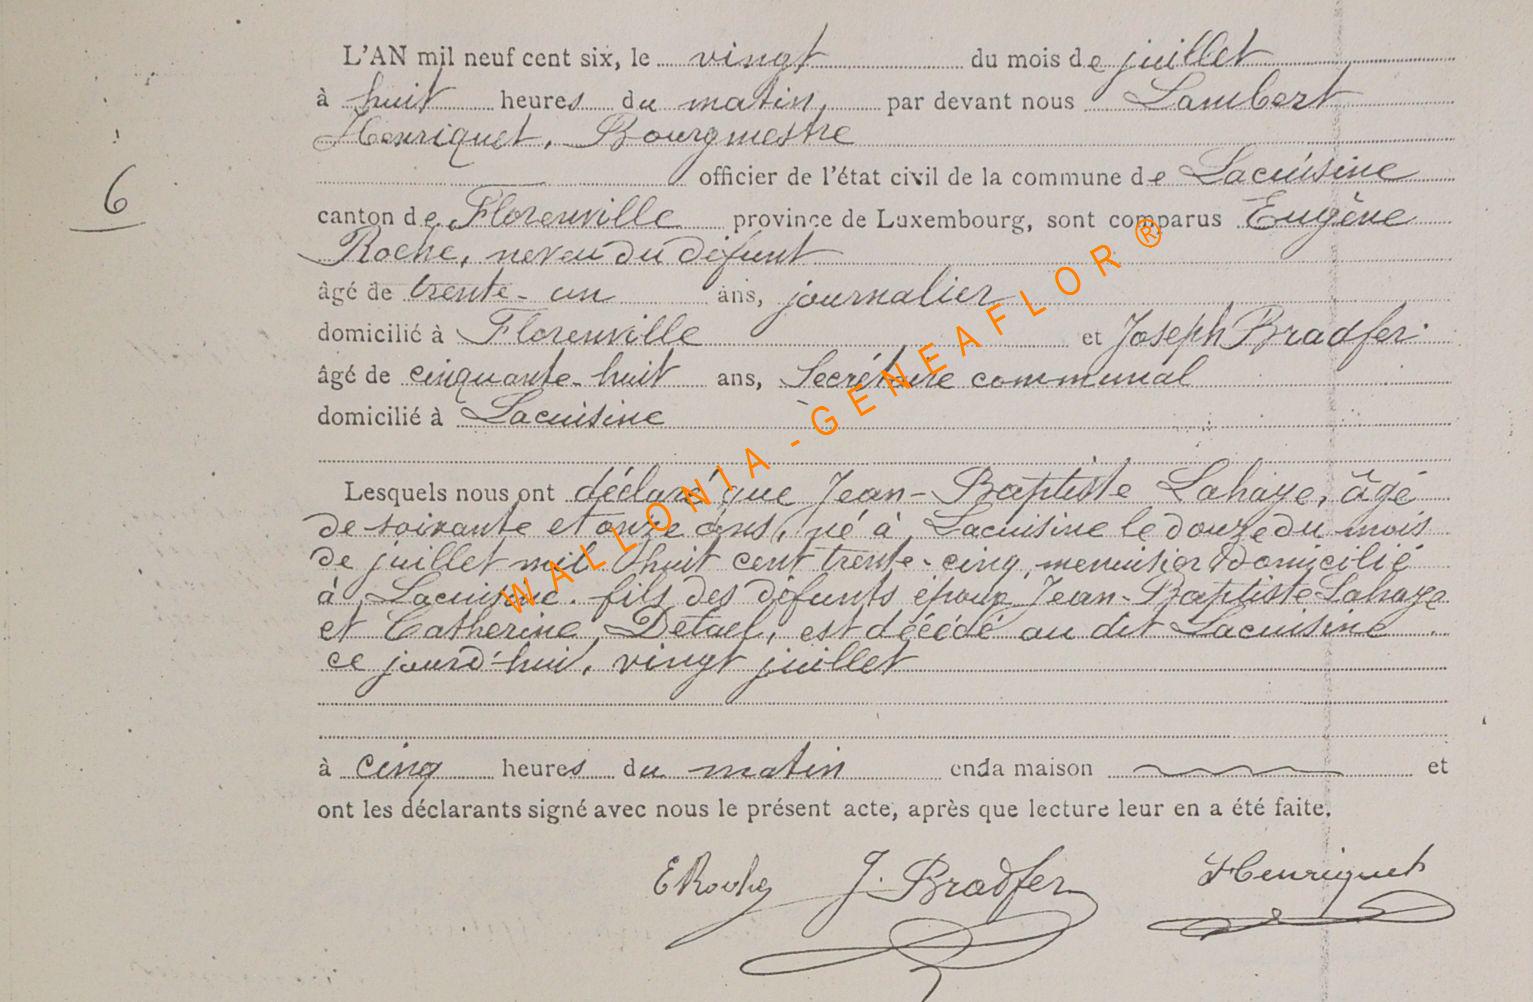 L'AN mil neuf cent six, le vingt du mois de juillet
à huit heures du matin, par devant nous Lambert
Henriquet, Bourgmestre
officier de l'état civil de la commune de Lacuisine
6
canton de Florenville province de Luxembourg, sont comparus Eugène
Roche, neveu du défunt
âgé de trente-un ans, journalier
domicilié à Florenville et Joseph Bradfer
âgé de cinquante-huit ans, Secrétaire communal
domicilié à Lacuisine
Lesquels nous ont déclaré que Jean-Baptiste Lahaye, âgé
de soixante et onze ans, né à Lacuisine le douze du mois
de juillet mil huit cent trente-cinq, menuisier domicilié
à Lacuisine. fils des défunts époux Jean-Baptiste Lahaye
et Catherine Detael, est décédé au dit Lacuisine
ce jourd'hui, vingt juillet
à cinq heures du matin en la maison et
ont les déclarants signé avec nous le présent acte, après que lecture leur en a été faite.
E Roche J. Bradfer Henriquet
WALLONIA - GENEAFLOR ®